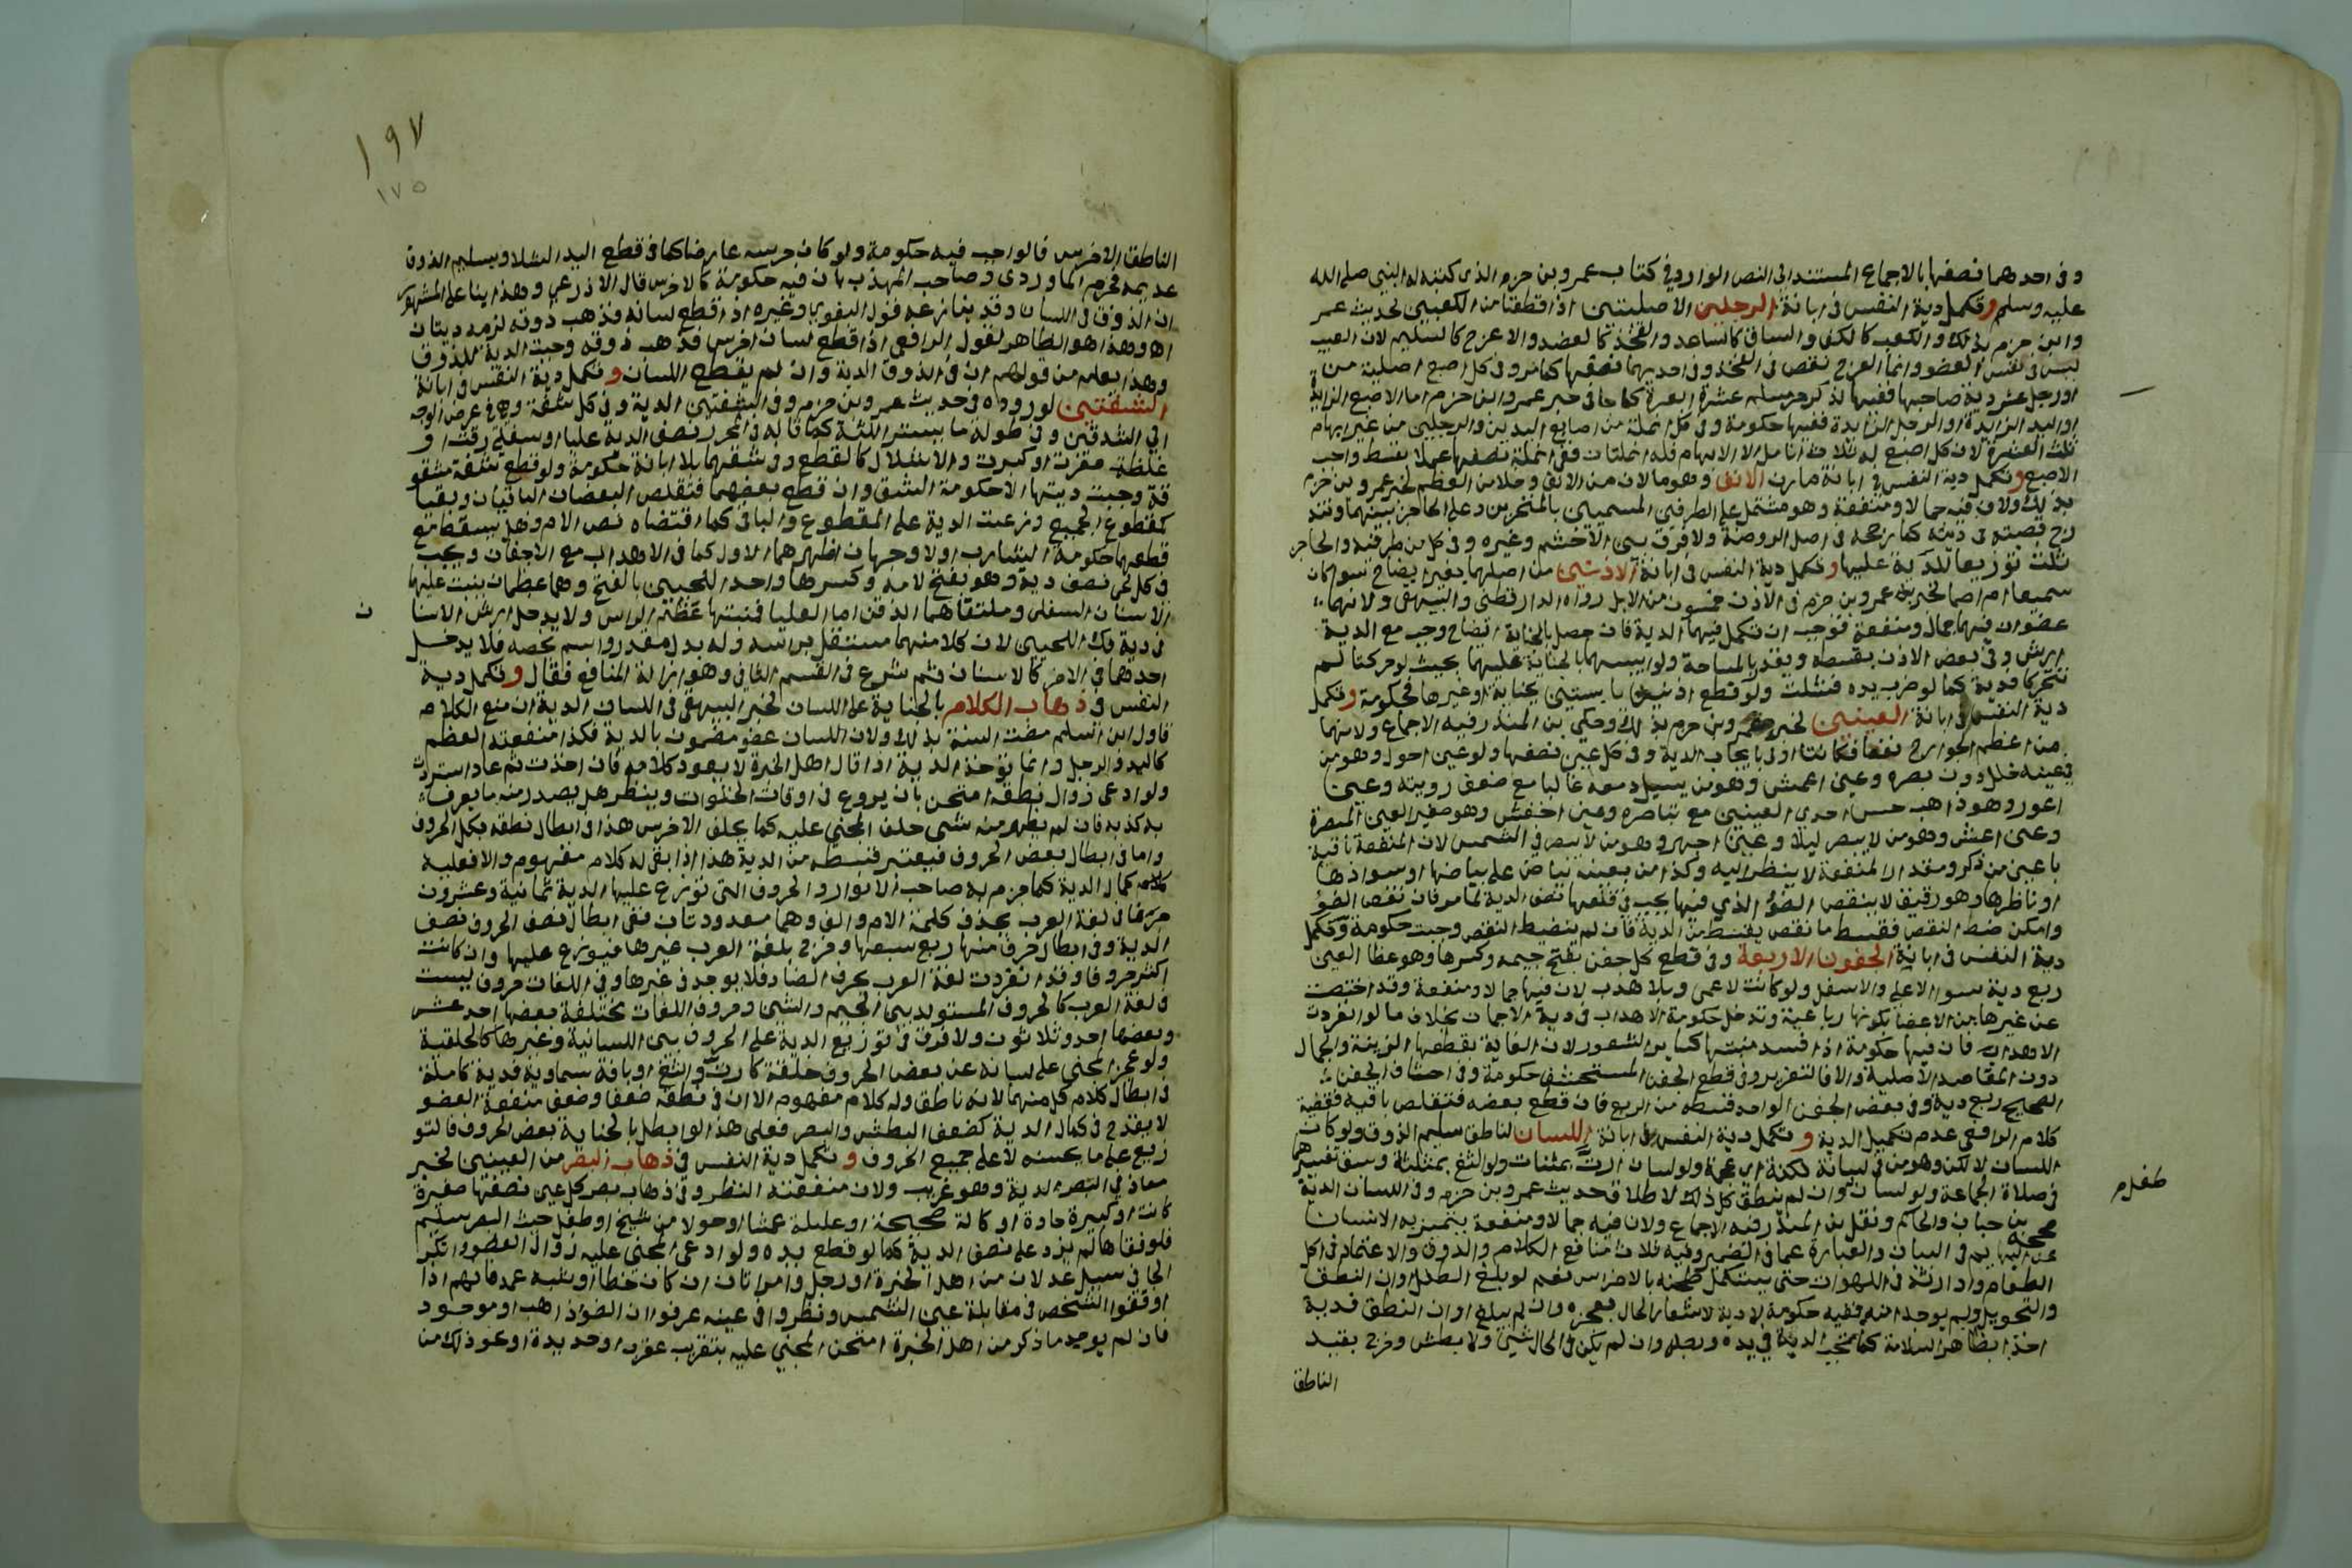 وفى احدهما نصفها بالاجماع المستند الى النص الوارد فى كتاب عمرو بن حزم الذى كتبه له النبى صلى الله
عليه وسلم وتكمل دية النفس فى ابانة الرجلين الاصليتين اذا قطعتا من الكعبين لحديث عمر
وابن حزم بذلك والكعب كالكف والساق كالساعد والفخذ كالعضد والاعرج كالسليم لان العيب
ليس فى نفس العضو وانما العرج نقص فى الفخذ وفى احديهما نصفها كما مر وفى كل اصبع اصلية من يد
اورجل عشر دية صاحبها ففيها لذكر حر مسلم عشرة ابعرة كما جا فى خبر عمرو ابن حزم اما الاصبع الزايدة
او اليد الزايدة او الرجل الزايدة ففيها حكومة وفى كل انملة من اصابع اليدين والرجلين من غير ابهام
ثلث العشرة لان كل اصبع له ثلاث انامل الا الابهام فله انملتان ففى انملته نصفها عملا بقسط واجب
الاصبع وتكمل دية النفس فى ابانة مارن الانف وهو ما لان من الانف وخلا من العظم لخبر عمرو بن حزم
بذلك ولان فيه جمالا ومنفعة وهو مشتمل على الطرفين المسميين بالمنخرين وعلى الحاجز بينهما وتند
رج قصبته فى ديته كما رجحه فى اصل الروضة ولا فرق بين الاخشم وغيره وفى كل من طرفيه والحاجز
ثلث توزيعا للدية عليها وتكمل دية النفس فى ابانة الاذنين من اصلهما بغير ايضاح سوا كان
سميعا ام اصما لخبر عمرو بن حزم فى الاذن خمسون من الابل رواه الدارقطنى والبيهقى ولانهما
عضوان فيهما جمال ومنفعة فوجب ان تكمل فيهما الدية فان حصل بالجناية ايضاح وجب مع الدية
ارش وفى بعض الاذن بقسطه ويقدر بالمساحة ولو ايبسهما بالجناية عليهما بحيث لو حركتا لم
تتحركا فدية كما لو ضرب يده فشلت ولو قطع اذنين يابستين بجناية او غيرها فحكومة وتكمل
دية النفس فى ابانة العينين لخبر عمرو بن حزم بذلك وحكى بن المنذر فيه الاجماع ولانهما
من اعظم الجوارح نفعا فكانتا اولى بايجاب الدية وفى كل عين نصفها ولو عين احول وهو من
فى عينه خلل دون بصره وعين اعمش وهو من يسيل دمعه غالبا مع ضعف رويته وعين
اعور وهو ذاهب حس احدى العينين مع بقا بصره وعين اخفش وهو صغير العين المبصرة
وعين اعشى وهو من لا يبصر ليلا وعين اجهر وهو من لا يبصر فى الشمس لان المنفعة باقية
باعين من ذكر ومقدار المنفعة لا ينظر اليه وكذا من بعينه بياض على بياضها او سوادها
او ناظرها وهو رقيق لا ينقص الضوء الذى فيها يجب فى قلعها نصف الدية لما مر فان نقص الضو
وامكن ضبط النقص فقسط ما نقص يقسط من الدية فان لم ينضبط النقص وجبت حكومة وتكمل
دية النفس فى ابانة الجفون الاربعة وفى قطع كل جفن بفتح جيمه وكسرها وهو غطا العين
ربع دية سوا الاعلى والاسفل ولو كانت لاعمى وبلا هدب لان فيها جمالا ومنفعة وقد اختصت
عن غيرها من الاعضا بكونها رباعية وتدخل حكومة الاهداب فى دية الاجفان بخلاف ما لو انفردت
الاهداب فان فيها حكومة اذا فسد منبتها كساير الشعور لان الفايت بقطعها الزينة والجمال
دون المقاصد الاصلية والا فالتعزير وفى قطع الجفن المستحشف حكومة وفى احشاف الجفن
الصحيح ربع دية وفى بعض الجفن الواحد قسطه من الربع فان قطع بعضه فتقلص باقيه فقضية
كلام الرافعى عدم تكميل الدية وتكمل دية النفس فى ابانة اللسان لناطق سليم الذوق ولو كان
اللسان لالكن وهو من فى لسانه لكنة اى عجمة ولو لسان ارت بمثناة ولو الثغ بمثلثة وسبق تفسيرهما
فى صلاة الجماعة ولو لسان طفل وان لم ينطق كل ذلك لاطلاق حديث عمرو بن حزم وفى اللسان الدية
صححه بن حبان والحاكم ونقل بن المنذر فيه الاجماع ولان فيه جمالا ومنفعة يتميز به الانسان
عن البهايم فى البيان والعبارة عما فى الضمير وفيه ثلاث منافع الكلام والذوق والاعتماد فى اكل
الطعام وادارته فى اللهوات حتى يستكمل طحنه بالاضراس نعم لو بلغ الطفل اوان النطق
والتحويل ولم يوجدا منه ففيه حكومة لا دية لاشعار الحال بعجزه وان لم يبلغ اوان النطق فدية
اخذا بظاهر السلامة كما تجب الدية فى يده ورجله وان لم يكن فى الحال مشى ولا بطش وخرج بقيد
الناطق
طفل م
١٩٧
١٧٥
الناطق الاخرس فالواجب فيه حكومة ولو كان خرسه عارضا كما فى قطع اليد الشلا وبسليم الذوق
عديمه فجزم الماوردى وصاحب المهذب بان فيه حكومة كالاخرس قال الاذرعى وهذا بنا على المشهور
ان الذوق فى اللسان وقد ينازعه قول البغوى وغيره اذا قطع لسانه فذهب ذوقه لزمه ديتان
اه وهذا هو الظاهر لقول الرافعى اذا قطع لسان اخرس فذهب ذوقه وجبت الدية للذوق
وهذا يعلم من قولهم ان فى الذوق الدية وان لم يقطع اللسان وتكمل دية النفس فى ابانة
الشفتين لوروده فى حديث عمرو بن حزم وفى الشفتين الدية وفى كل شفة وهى فى عرض الوجه
الى الشدقين وفى طوله ما يستر اللثة كما قاله فى المحرر نصف الدية عليا او سفلى رقت او
غلظت صغرت او كبرت والاشلال كالقطع وفى شقهما بلا ابانة حكومة ولو قطع شفة مشقو
قة وجبت ديتها الا حكومة الشق وان قطع بعضهما فتقلص البعضان الباقيان وبقيا
كمقطوع الجميع وزعت الدية على المقطوع والباقى كما اقتضاه نص الام وهل يسقط مع
قطعهما حكومة الشارب او لا وجهان اظهرهما الاول كما فى الاهداب مع الاجفان ويجب
فى كل لحى نصف دية وهو بفتح لامه وكسرها واحد اللحيين بالفتح وهما عظمان ينبت عليهما
الاسنان السفلى وملتقاهما الذقن اما العليا فمنبتها عظم الراس ولا يدخل ارش الاسنا
ن
فى دية فك اللحيين لان كلا منهما مستقل براسه وله بدل مقدر واسم يخصه فلا يدخل
احدهما فى الاخر كالاسنان ثم شرع فى القسم الثانى وهو ازالة المنافع فقال وتكمل دية
النفس فى ذهاب الكلام بالجناية على اللسان لخبر البيهقى فى اللسان الدية ان منع الكلام
قاول ابن اسلم مضت السنة بذلك ولان اللسان عضو مضمون بالدية فكذا منفعته العظمى
كاليد والرجل وانما تؤخذ الدية اذا قال اهل الخبرة لا يعود كلامه فان اخذت ثم عاد استردت
ولو ادعى زوال نطقه امتحن بان يروع فى اوقات الخلوات وينظر هل يصدر منه ما يعرف
به كذبه فان لم يظهر منه شى حلف المجنى عليه كما يحلف الاخرس هذا فى ابطال نطقه بكل الحروف
واما فى ابطال بعض الحروف فيعتبر قسطه من الدية هذا اذا بقى له كلام مفهوم والا فعليه
كمال الدية كما جزم به صاحب الانوار والحروف التى توزع عليها الدية ثمانية وعشرون
حرفا فى لغة العرب بحذف كلمة لام والف وهما معدودتان ففى ابطال نصف الحروف نصف
الدية وفى ابطال حرف منها ربع سبعها وخرج بلغة العرب غيرها فيوزع عليها وان كانت
اكثر حروفا وقد انفردت لغة العرب بحرف الضاد فلا يوجد فى غيرها وفى اللغات حروف ليست
فى لغة العرب كالحروف المستولد بين الجيم والشين وحروف اللغات مختلفة بعضها احد عشر
وبعضها احد وثلاثون ولا فرق فى توزيع الدية على الحروف بين اللسانية وغيرها كالحلقية
ولو عجز المجنى على لسانه عن بعض الحروف خلقة كارت والثغ او بافة سماوية فدية كاملة
فى ابطال كلام كل منهما لانه ناطق وله كلام مفهوم الا ان فى نطقه ضعفا وضعف منفعة العضو
لا يقدح فى كمال الدية كضعف البطش والبصر فعلى هذا لو ابطل بالجناية بعض الحروف فالتو
زيع على ما يحسنه لا على جميع الحروف وتكمل دية النفس فى ذهاب البصر من العينين لخبر
معاذ فى البصر الدية وهو غريب ولان منفعته النظر وفى ذهاب بصر كل عين نصفها صغيرة
كانت او كبيرة حادة او كالة صحيحة او عليلة عمشا او حولا من شيخ او طفل حيث البصر سليم
فلو فقاها لم يزد على نصف الدية كما لو قطع يده ولو ادعى المجنى عليه زوال الضوء وانكر
الجانى سيل عدلان من اهل الخبرة او رجل وامراتان ان كان خطا او شبه عمد فانهم اذا
اوقفوا الشخص فى مقابلة عين الشمس ونظروا فى عينه عرفوا ان الضوء ذاهب او موجود
فان لم يوجد ما ذكر من اهل الخبرة امتحن المجنى عليه بتقريب عقرب او حديدة او نحو ذلك من